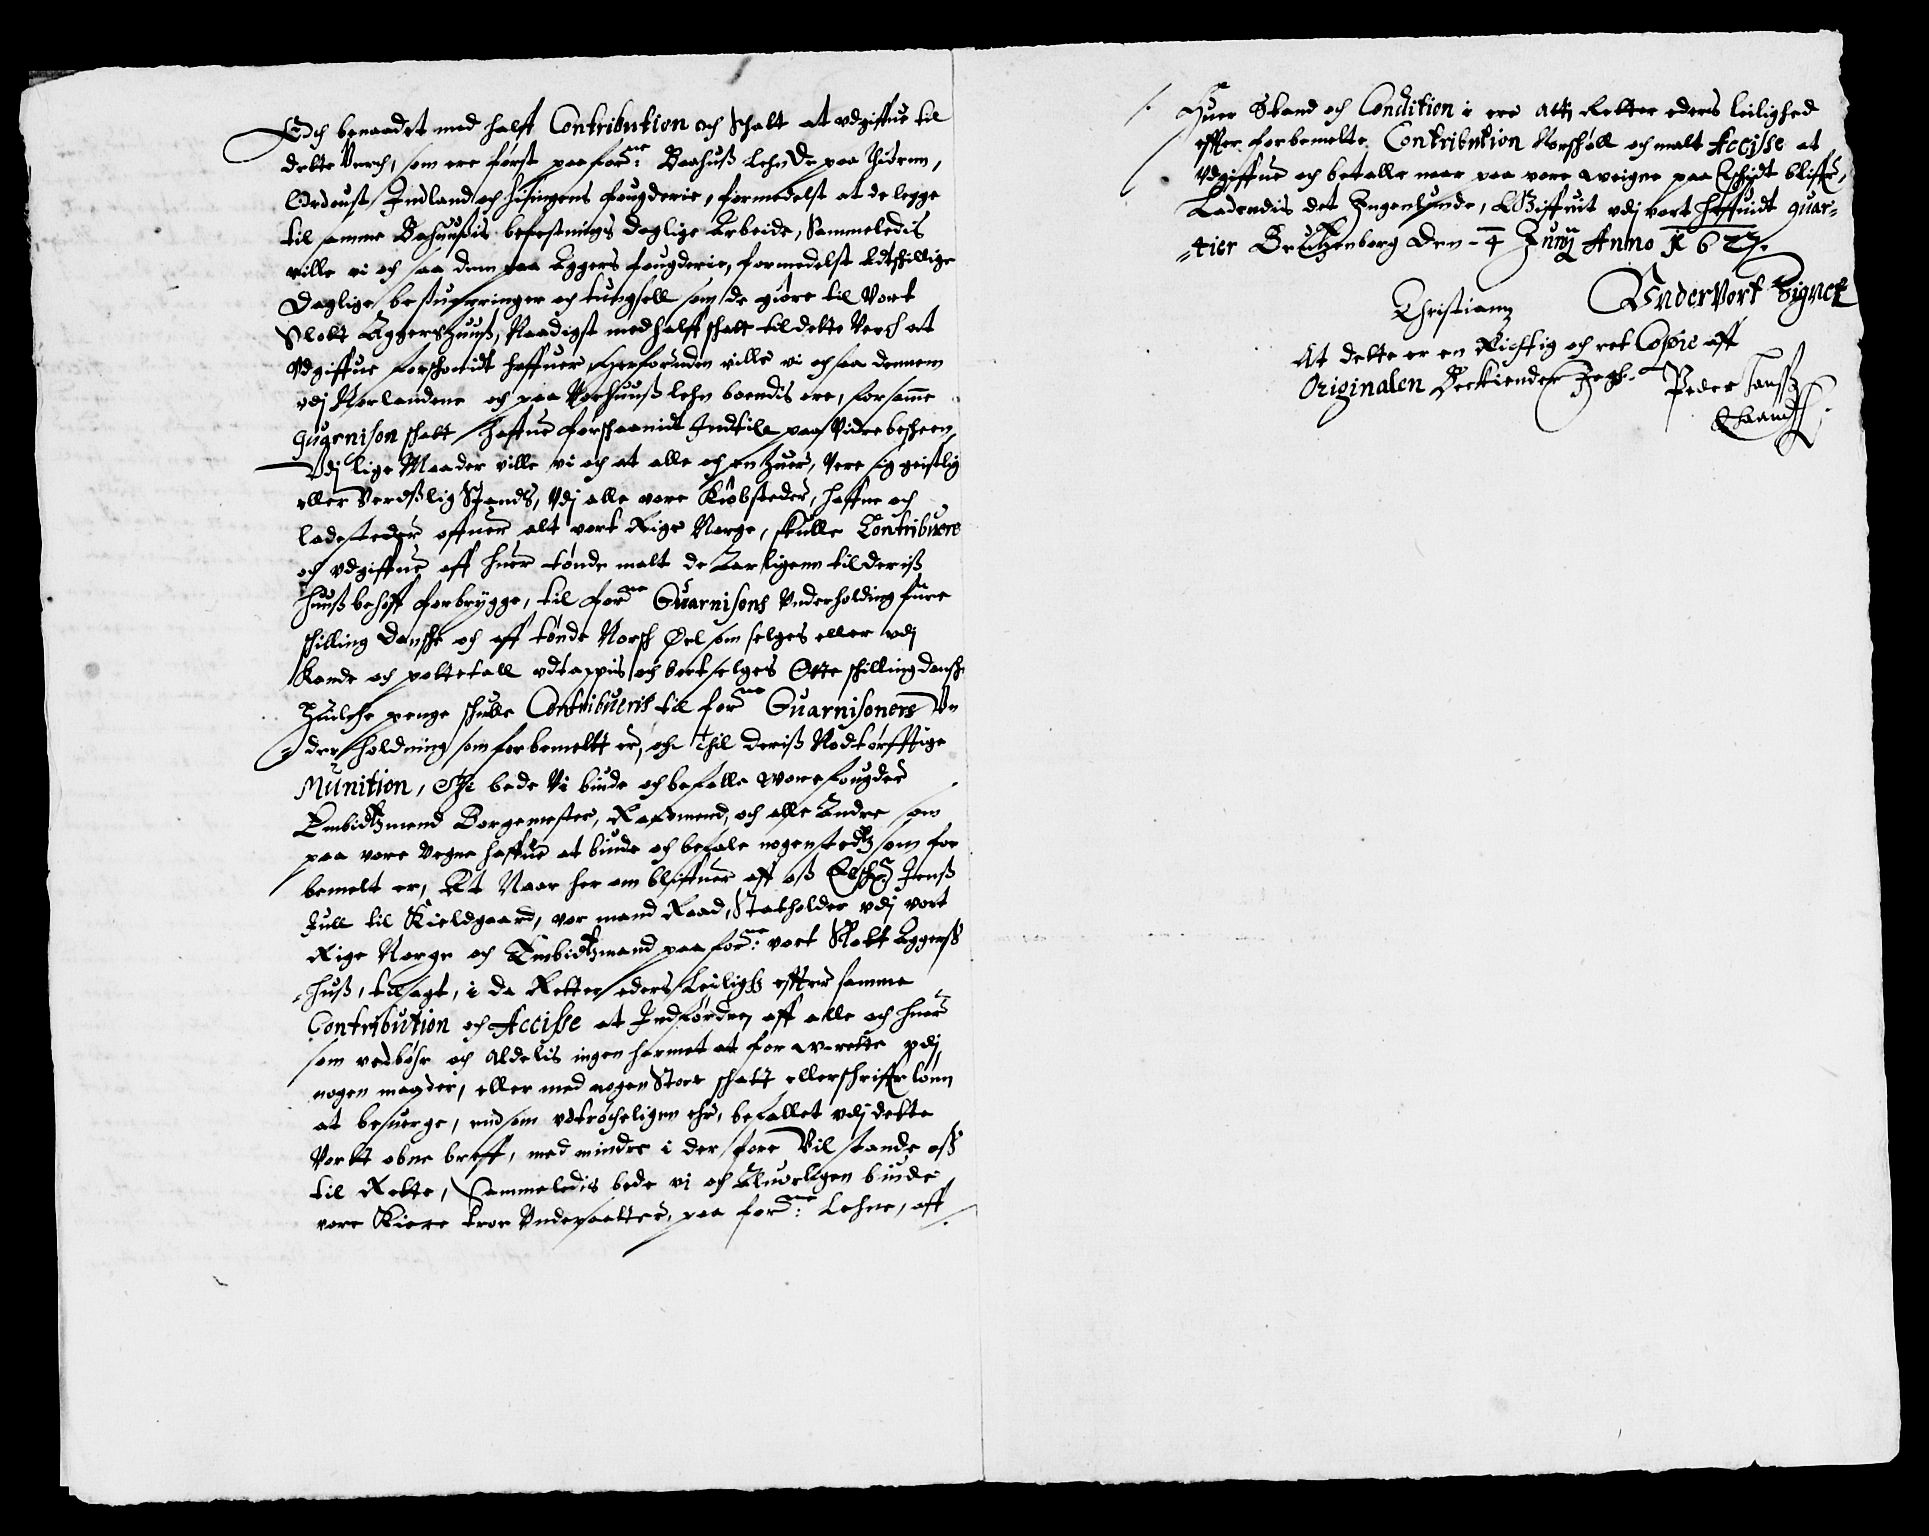 Och benaadet med halft Contribution och Schatt at vdgiffue til
dette Verch, som ere først paa for:ne Baahuß Lehn De paa Thiorn,
Ordoust Indland och Hisingens fougderie, formedelst at de legge
til samme Bahuußis befestnings daglige Arbeide, Sammeledis
ville vi och saa dem paa Aggers fougderie, formedelst Adtschillige
Daglige besuerringer och tungsell som de giøre til Vort
Slott Aggershuuß, Naadigst med halff schatt til dette Verch at
Vdgiffue forschonidt haffuer, Herforuden ville vi och saa dennem
vdj Norlandene och paa Varhuuß Lehn boendis ere, for samme
Guarnison schatt haffue forschaanidt Indtill paa Vidre bescheen,
Vdj lige Maader ville vi och at alle och en huer, Vere sig geistlig
eller Verdßlig Stands, Vdj alle vore Kiøbsteder, haffne och
ladesteder offuer alt vort Rige Norge, skulle Contribuere
och vdgiffue aff huer tønde malt de Aarligenn til deriß
huuß behoff forbrygge, til for:ne Guarnisons Vnderholding fiire
schilling Dansche och aff tønde Norsch Øel som selges eller vdj
Kande och pottetall vdtappis och bortselges Otte schilling dansch
Huilche penge schulle Contribueris til for:ne Guarnisoners Vn
derholdning som forbemeltt er, och thil deriß Nødtørfftige
Munition, Thi bede Vi biude och befalle vore fougder
Embidtzmend Borgemester, Raadmend, och alle Andre som
paa vore Vegne haffue at biude och befale nogensteds som for
bemelt er, At Naar her om bliffuer aff oß Elsch: Jenß
Jull til Kieldgaard, vor mand Raad, Statholder vdj vort
Rige Norge och Embidtzmand paa for:ne vort Slott Aggerß
huß, tilsagt, i da Retter eders Leilighed effter samme
Contribution och Accisse at Indfordrej aff alle och huer
som vedbøhr och Aldelis ingen hermet at forurette vdj
nogen maader, eller med nogen Store schatt eller schriffer lønn
at besuerge, end som vdtrøcheligen ehr, befallet vdj dette
Vortt obne breff, med mindre i der fore Vil stande oß
til Rette, Sammeledis bede vi och Aluorligen biude
vore Kiere tro Vndersaatter, paa for:ne Lehne, aff
Huer Stand och Condition i ere atj Retter eders leilighed
effter forbemelte Contribution Korschøll och malt Accisse at
Vdgiffue och betalle naar paa vore weigne paa Eschidt bliffr,
Ladendis det Ingenlunde, Giffuit vdj vort hoffuidt quar-
tier Crutzenborg Den 4 Junij Anno 1627.
Christianj Vnder Vort Signet
At dette er en Rigtig och ret Copie aff
Originalen Bekiender Jegh. Peder